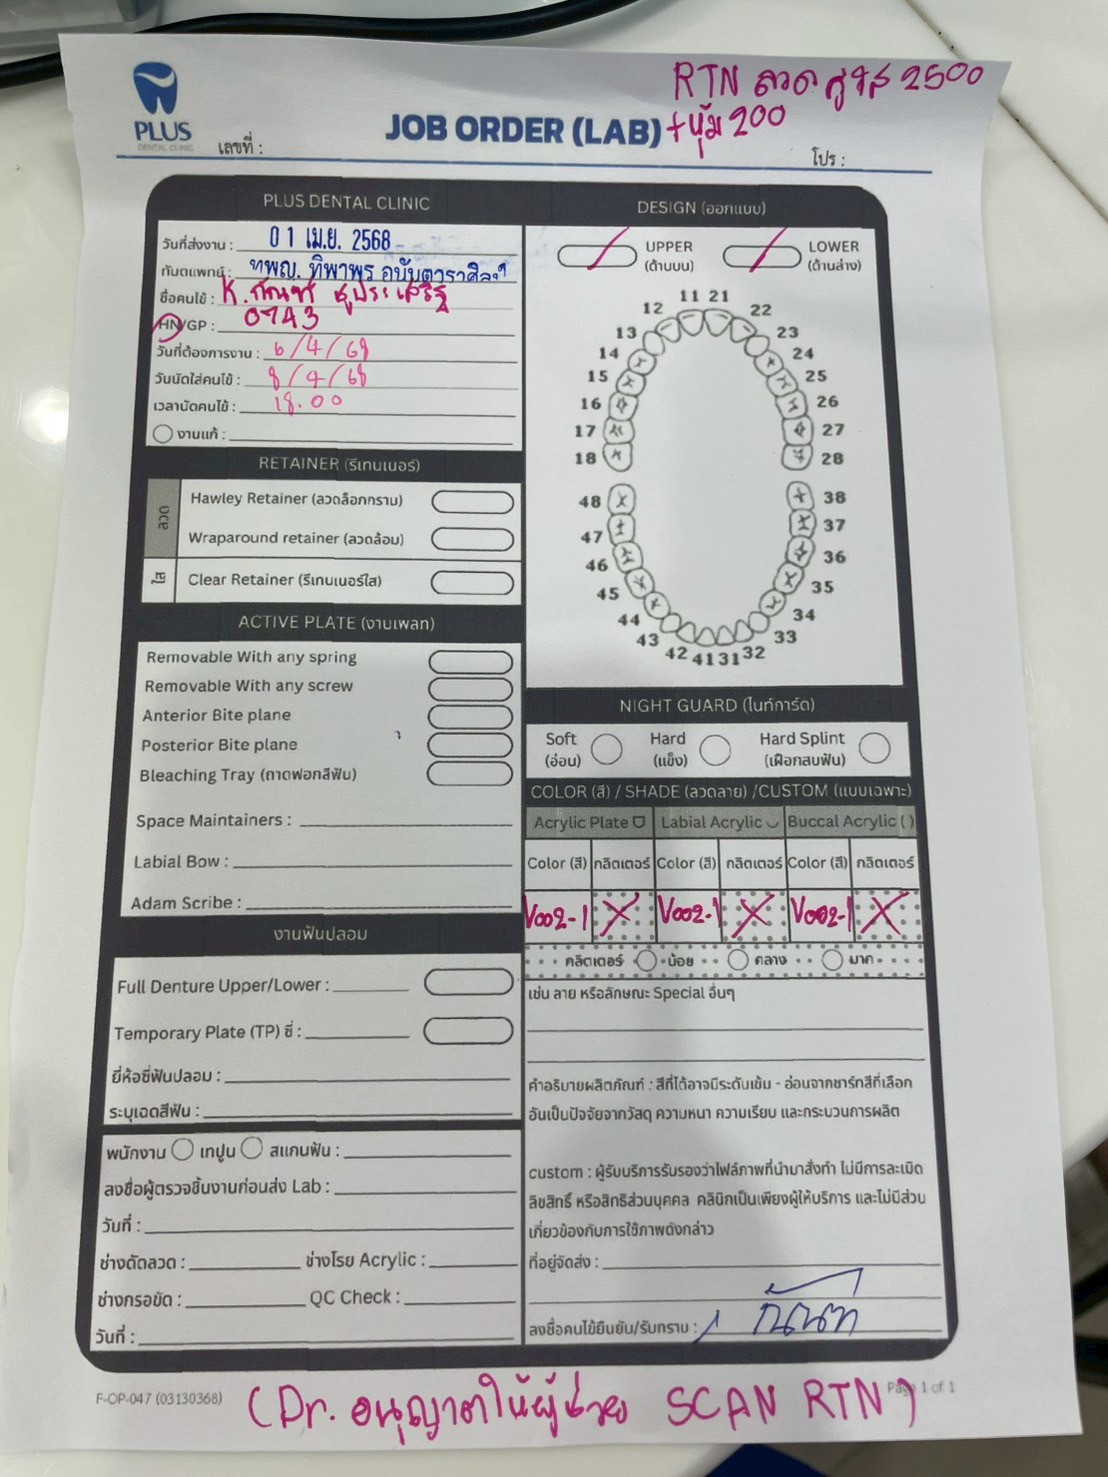 RTN ลวด คู่ใส 2500
+หุ้ม 200
PLUS
DENTAL CLINIC
JOB ORDER (LAB)
เลขที่ :
โปร :
PLUS DENTAL CLINIC
วันที่ส่งงาน : 01 เม.ย. 2568
ทันตแพทย์ : ทพญ. ทิพาพร อนันตาราศิลป์
ชื่อคนไข้ : K.
HN/GP : 0743
วันที่ต้องการงาน : 6/4/68
วันนัดใส่คนไข้ : 8/4/68
เวลานัดคนไข้ : 18.00
งานแก้ :
RETAINER (รีเทนเนอร์)
ลวด
Hawley Retainer (ลวดล็อกกราม)
Wraparound retainer (ลวดล้อม)
ใส
Clear Retainer (รีเทนเนอร์ใส)
ACTIVE PLATE (งานเพลท)
Removable With any spring
Removable With any screw
Anterior Bite plane
Posterior Bite plane
Bleaching Tray (ถาดฟอกสีฟัน)
Space Maintainers :
Labial Bow :
Adam Scribe :
งานฟันปลอม
Full Denture Upper/Lower :
Temporary Plate (TP) ซี่ :
ยี่ห้อซี่ฟันปลอม :
ระบุเฉดสีฟัน :
พนักงาน เทปูน สแกนฟัน :
ลงชื่อผู้ตรวจชิ้นงานก่อนส่ง Lab :
วันที่ :
ช่างดัดลวด : ช่างโรย Acrylic :
ช่างกรอขัด : QC Check :
วันที่ :
DESIGN (ออกแบบ)
UPPER LOWER
(ด้านบน) (ด้านล่าง)
11 21
12 22
13 23
14 24
15 25
16 26
17 27
18 28
48 38
47 37
46 36
45 35
44 34
43 33
42 41 31 32
NIGHT GUARD (ไนท์การ์ด)
Soft Hard Hard Splint
(อ่อน) (แข็ง) (เฝือกสบฟัน)
COLOR (สี) / SHADE (ลวดลาย) /CUSTOM (แบบเฉพาะ)
Acrylic Plate Labial Acrylic Buccal Acrylic ( )
Color (สี) กลิตเตอร์ Color (สี) กลิตเตอร์ Color (สี) กลิตเตอร์
V002-1 X V002-1 X V002-1 X
กลิตเตอร์ น้อย กลาง มาก
เช่น ลาย หรือลักษณะ Special อื่นๆ
คำอธิบายผลิตภัณฑ์ : สีที่ได้อาจมีระดับเข้ม - อ่อนจากชาร์ทสีที่เลือก
อันเป็นปัจจัยจากวัสดุ ความหนา ความเรียบ และกระบวนการผลิต
custom : ผู้รับบริการรับรองว่าไฟล์ภาพที่นำมาสั่งทำ ไม่มีการละเมิด
ลิขสิทธิ์ หรือสิทธิส่วนบุคคล คลินิกเป็นเพียงผู้ให้บริการ และไม่มีส่วน
เกี่ยวข้องกับการใช้ภาพดังกล่าว
ที่อยู่จัดส่ง :
ลงชื่อคนไข้ยืนยัน/รับทราบ :
F-OP-047 (03130368)
Page 1 of 1
(Dr. อนุญาตให้ผู้ช่วย SCAN RTN)